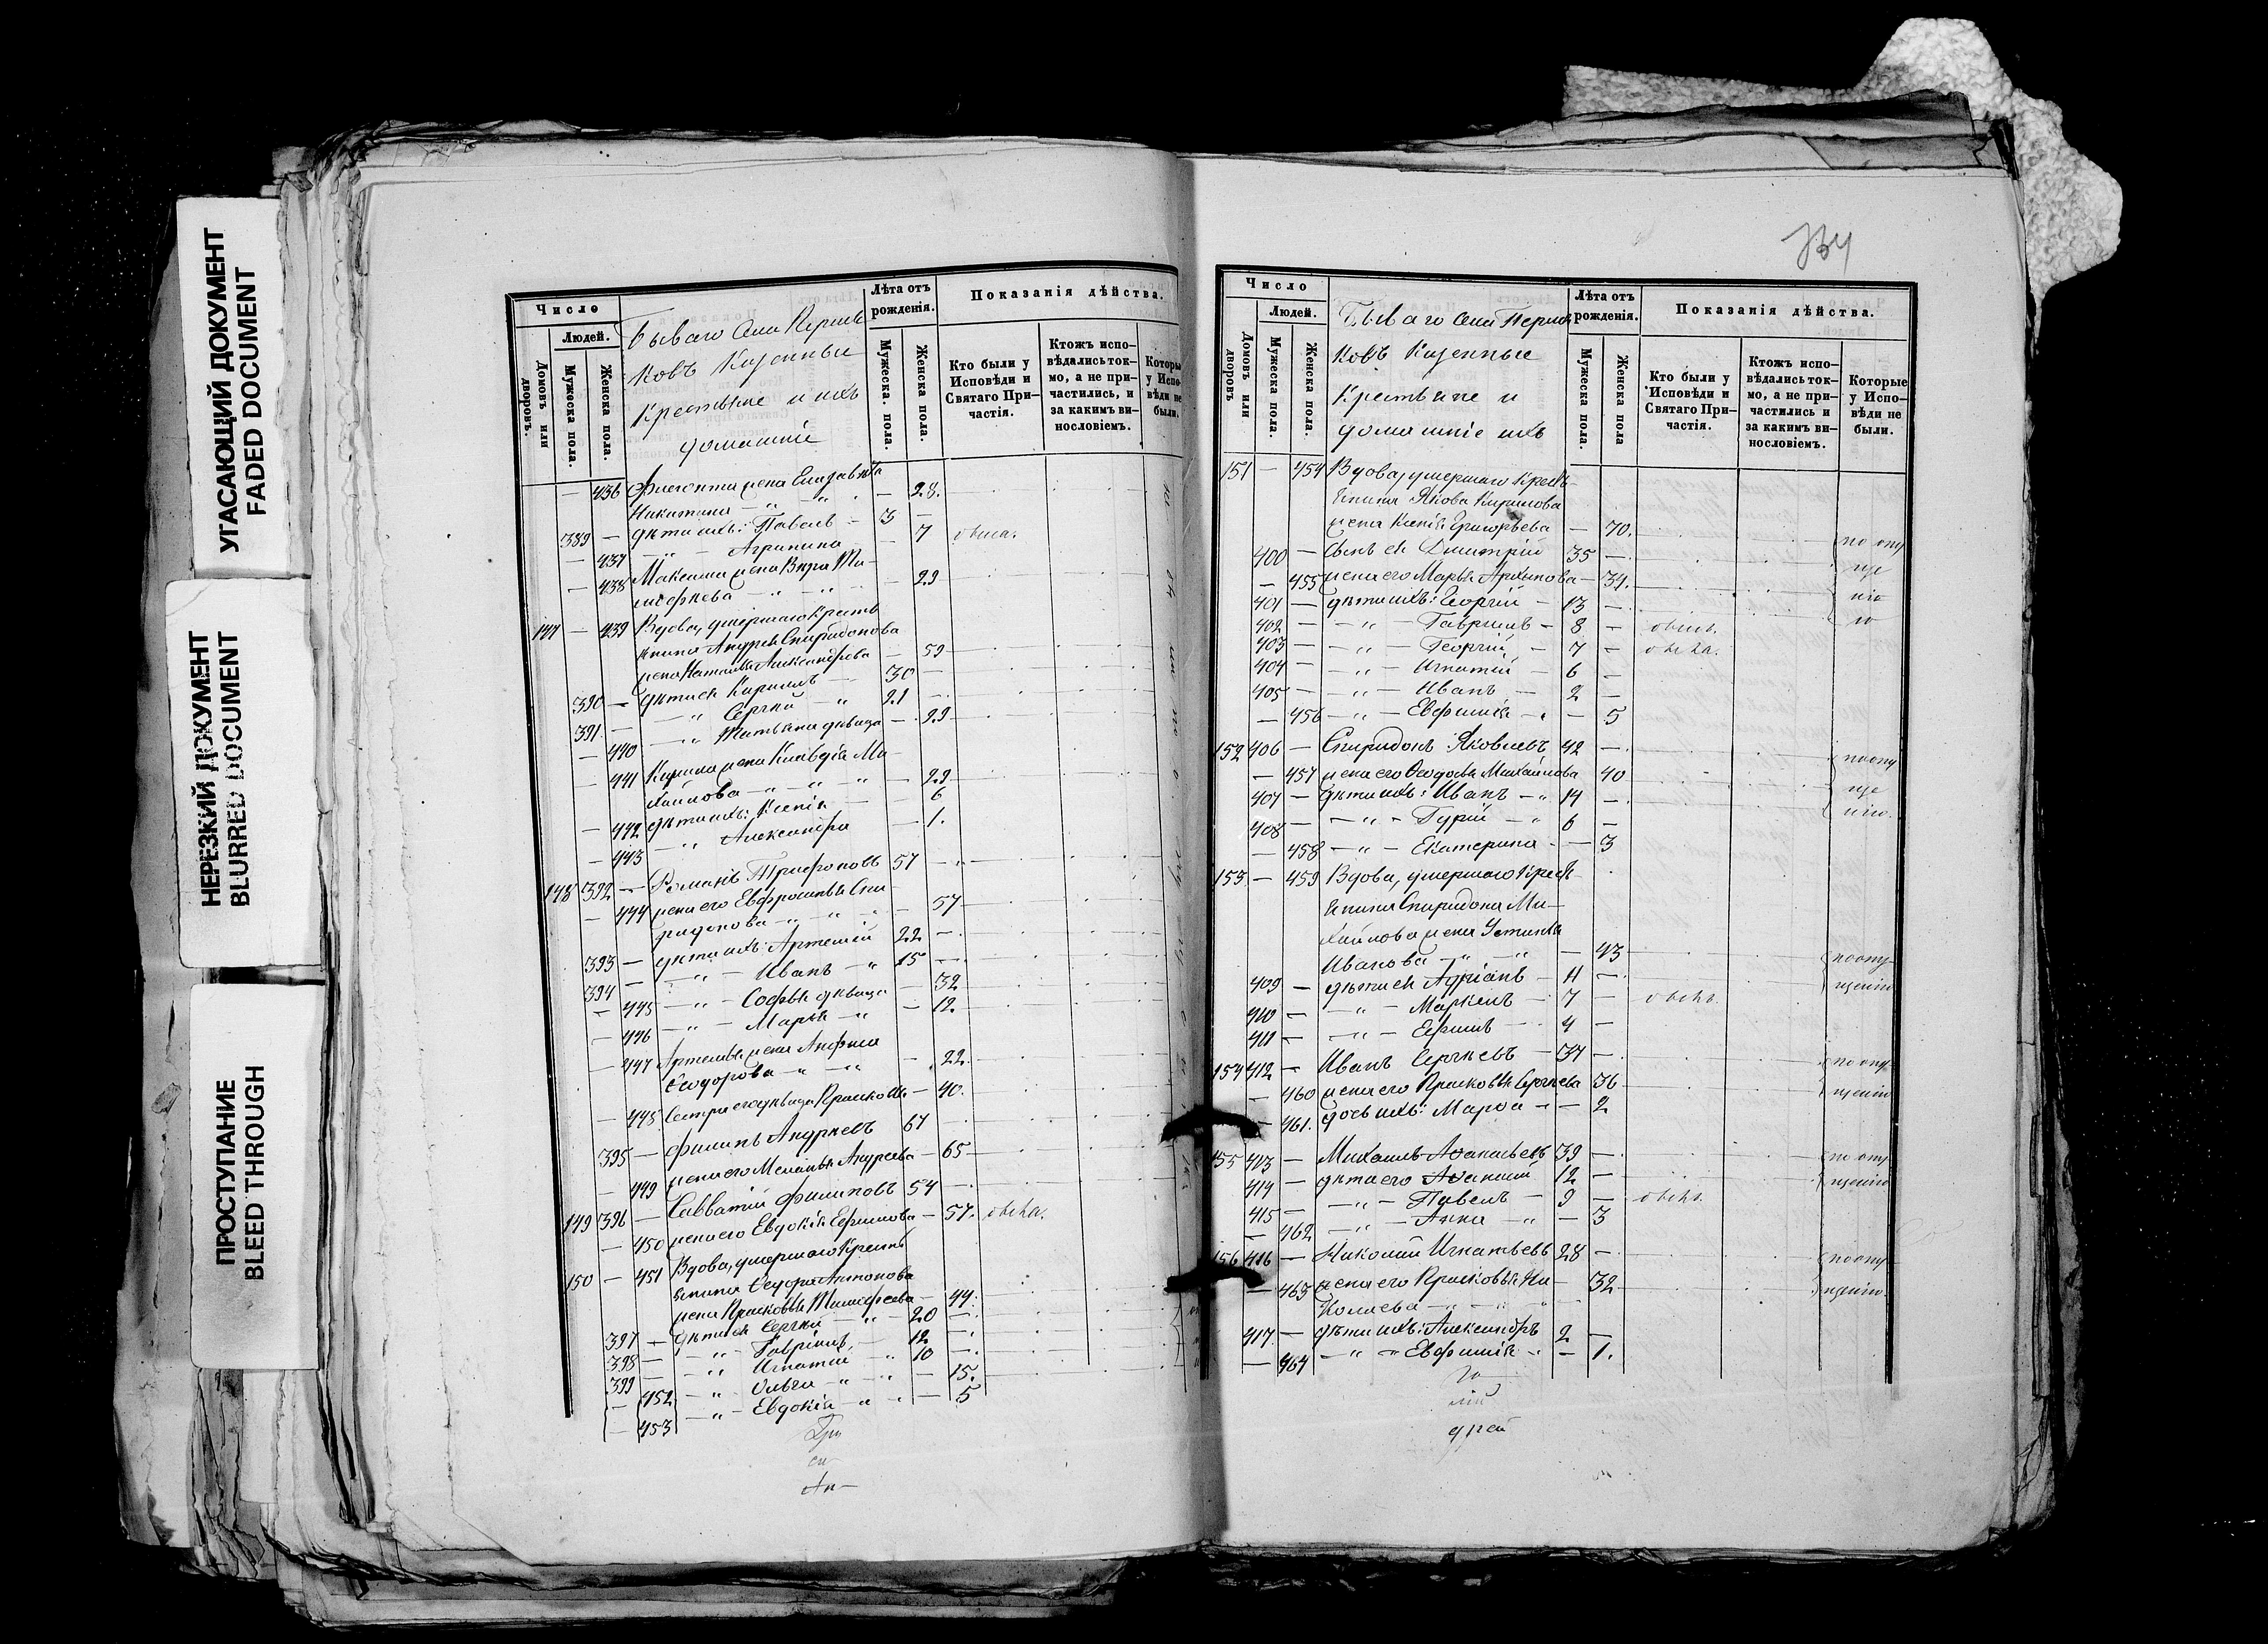 УГАСАЮЩИЙ ДОКУМЕНТ
FADED DOCUMENT
НЕРЕЗКИЙ ДОКУМЕНТ
BLURRED DOCUMENT
ПРОСТУПАНИЕ
BLEED THROUGH
Число
Людей.
Домовъ или дворовъ.
Мужеска пола.
Женска пола.
Бывшаго села
ковъ Казенные
Крестьяне и ихъ
домашніе
Лѣта отъ рожденія.
Мужеска. пола.
Женска пола.
Показанія дѣйства.
Кто были у Исповѣди и Святаго При-частія.
Ктожъ испо-вѣдались ток-мо, а не при-частились, и за какимъ ви-нословіемъ.
Которые у Испо-вѣди не были.
— 436 жена Елизавета
Никитина — 28.
389 — дѣти ихъ: Павелъ 3 —
— 437 Агрипина — 7
— 438 Максима жена Вѣра Ти-
мофеева — 29
147 — 439 Вдова, умершаго Кресть
янина Андрея Спиридонова
жена Наталья Александрова — 59
390 — дѣти ея Кирилъ 30 —
391 — Сергѣй 21 —
— 440 Татьяна дѣвица — 29
— 441 Кирила жена Клавдія Ми-
хайлова — 29
— 442 дѣти ихъ: Ксенія — 6
— 443 Александра — 1.
148 392 — Романъ Трифоновъ 57 —
— 444 жена его Евфросинья Спи
ридонова — 57
393 — дѣти ихъ: Артемій 22 —
394 — Иванъ 15 —
— 445 Софья дѣвица — 32
— 446 Марья — 12
— 447 Артемья жена Анфиса
Ѳеодорова — 22.
— 448 Сестра его дѣвица Прасковья — 40.
395 — Филипъ Андреевъ 67 —
— 449 жена его Меланья Андреева — 65
149 396 — Савватій Филиповъ 54 —
— 450 жена его Евдокія Ефимова — 57.
150 — 451 Вдова, умершаго Кресть
янина Ѳедора Антонова
жена Прасковья Тимофеева — 44.
397 — дѣти ея Сергѣй 20 —
398 — Гавріилъ 12 —
399 — Игнатій 10 —
— 452 Ольга — 15.
— 453 Евдокія — 5
Число
Людей.
Домовъ или дворовъ
Мужеска пола.
Женска пола.
Бывшаго села
ковъ Казенные
Крестьяне и
домашніе ихъ
Лѣта отъ рожденія.
Мужеска пола.
Женска пола
Показанія дѣйства.
Кто были у Исповѣди и Святаго При-частія.
Ктожъ испо-вѣдались ток-мо, а не при-частились и за какимъ ви-нословіемъ.
Которые у Испо-вѣди не были.
151 — 454 Вдова, умершаго Кресть-
янина Якова Кирилова
жена Ксенія Григорьева — 70. по опу
400 — Сынъ ея Димитрій 35 — ще
— 455 жена его Марья Архипова — 34. нію
401 — дѣти ихъ: Георгій 13 —
402 — Гавріилъ 8 —
403 — Георгій 7 —
404 — Игнатій 6 —
405 — Иванъ 2 —
— 456 Евфимія — 5
152 406 — Спиридонъ Яковлевъ 42 — по опу
— 457 жена его Ѳеодосья Михайлова 40 ще
407 — дѣти ихъ: Иванъ 14 — нію.
408 — Гурій 6 —
— 458 Екатерина — 3
153 — 459 Вдова, умершаго Кресть-
янина Спиридона Ми-
хайлова жена Устинья
Иванова — 43 по опу-
409 — дѣти ея Адріанъ 11 — щенію
410 — Маркелъ 7 —
411 — Ефимъ 4 —
154 412 — Иванъ Сергѣевъ 37 — по опу-
— 460 жена его Прасковья Сергѣева 36 щенію
— 461. дочь ихъ: Марѳа — 2
155 413 — Михаилъ Аѳанасьевъ 39 — по опу
414 — дѣти его 12 — щенію
415 — Павелъ 9 —
— 462 Анна — 3
156 416 — Николай Игнатьевъ 28 — по опу
— 463 жена его Прасковья Ни- 32 щенію.
колаева
417 — дѣти ихъ: Александръ 2 —
— 464 Евфимія — 1.